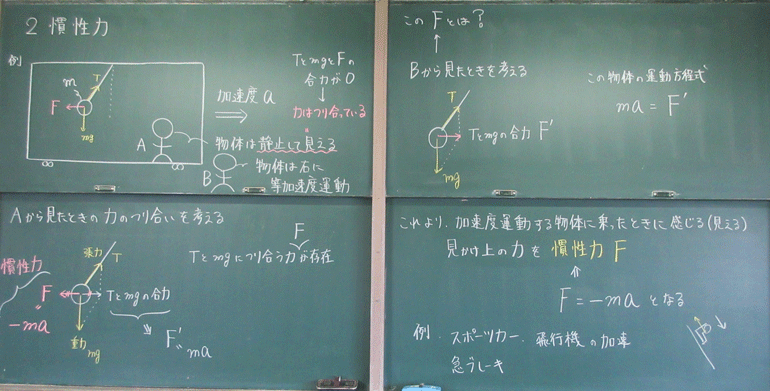 2 慣性力
例
m
T
F
mg
加速度 a
TとmgとFの
合力が0
↓
力はつり合っている
A
物体は静止して見える
B
物体は右に
等加速度運動
このFとは?
↑
Bから見たときを考える
T
Tとmgの合力 F'
mg
この物体の運動方程式
ma = F'
Aから見たときの力のつり合いを考える
F
Tとmgにつり合う力が存在
張力 T
慣性力
F
"
-ma
Tとmgの合力
F'
" ma
重力 mg
これより、加速度運動する物体に乗ったときに感じる(見える)
見かけ上の力を 慣性力 F
⇑
F = -ma となる
例. スポーツカー、飛行機の加速
急ブレーキ